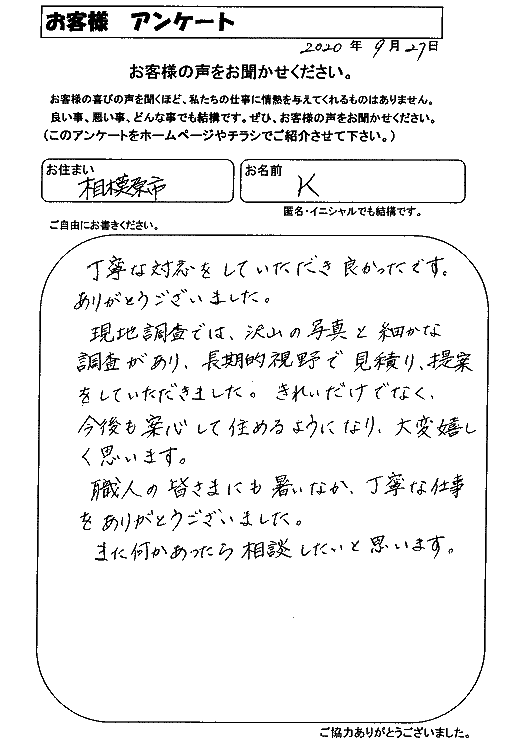 お客様 アンケート
2020 年 9 月 27日
お客様の声をお聞かせください。
お客様の喜びの声を聞くほど、私たちの仕事に情熱を与えてくれるものはありません。
良い事、悪い事、どんな事でも結構です。ぜひ、お客様の声をお聞かせください。
（このアンケートをホームページやチラシでご紹介させて下さい。）
お住まい
相模原市
お名前
K
匿名・イニシャルでも結構です。
ご自由にお書きください。
丁寧な対応をしていただき良かったです。
ありがとうございました。
現地調査では、沢山の写真と細かな
調査があり、長期的視野で見積り、提案
をしていただきました。きれいだけでなく、
今後も安心して住めるようになり、大変嬉し
く思います。
職人の皆さまにも暑いなか、丁寧な仕事
をありがとうございました。
また何かあったら相談したいと思います。
ご協力ありがとうございました。